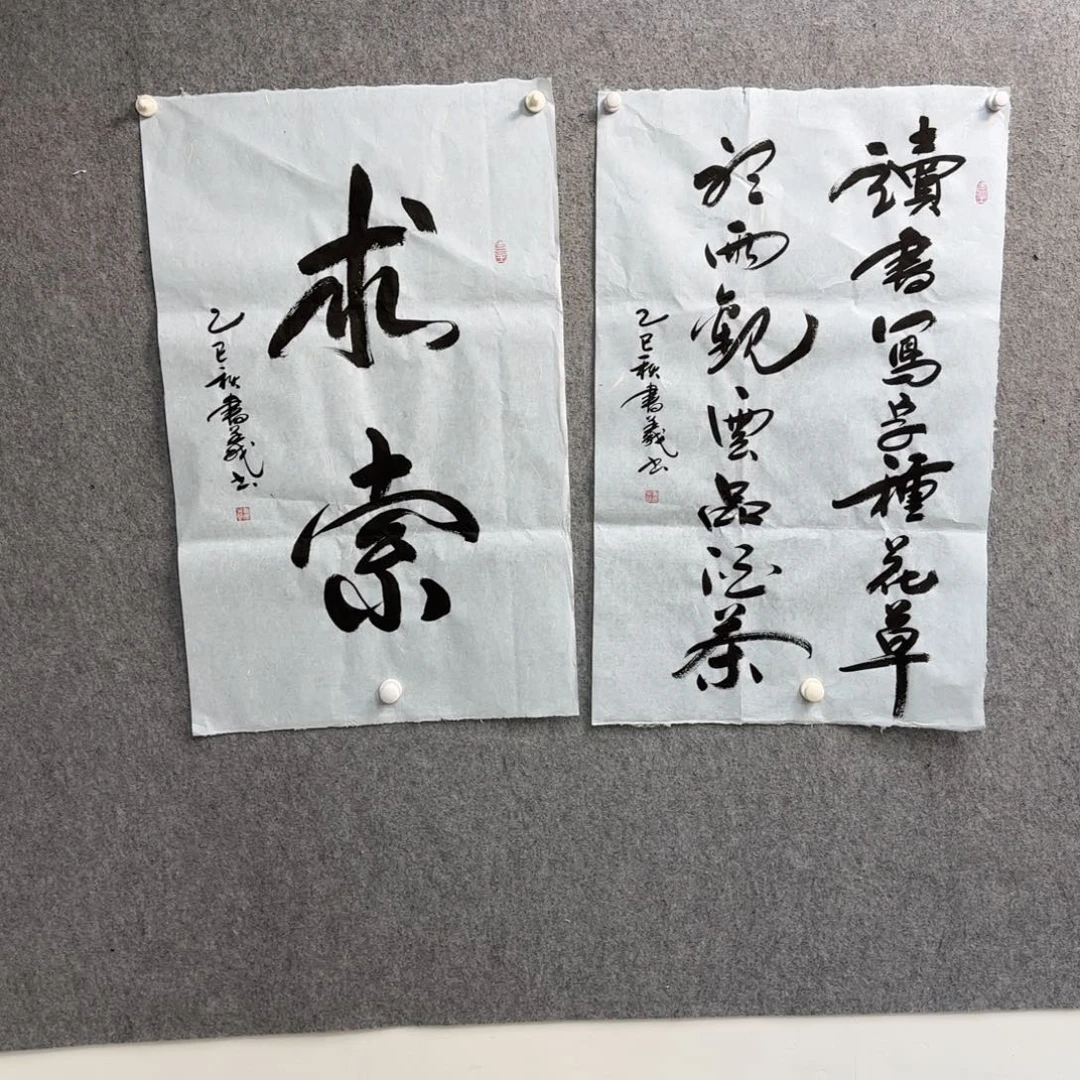 求索
乙巳秋書義书
讀書寫字種花草
聽雨觀雲品酒茶
乙巳秋書義书